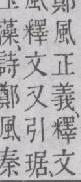 鄭風正義釋文
風釋文又引琚
藻詩鄭風秦